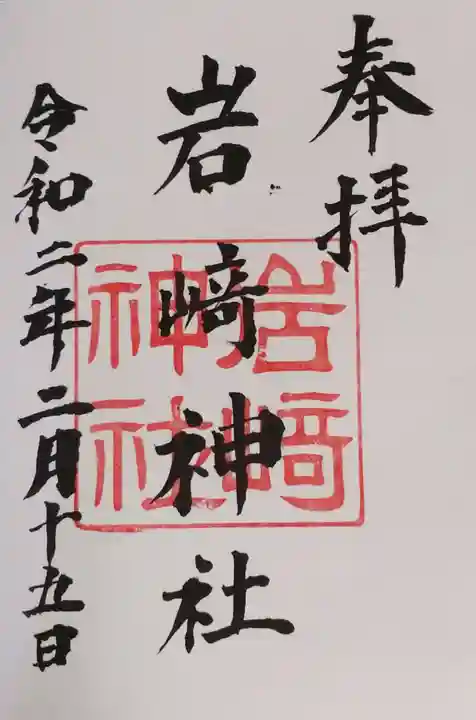 奉拝
岩崎神社
岩崎
神社
令和二年二月十五日